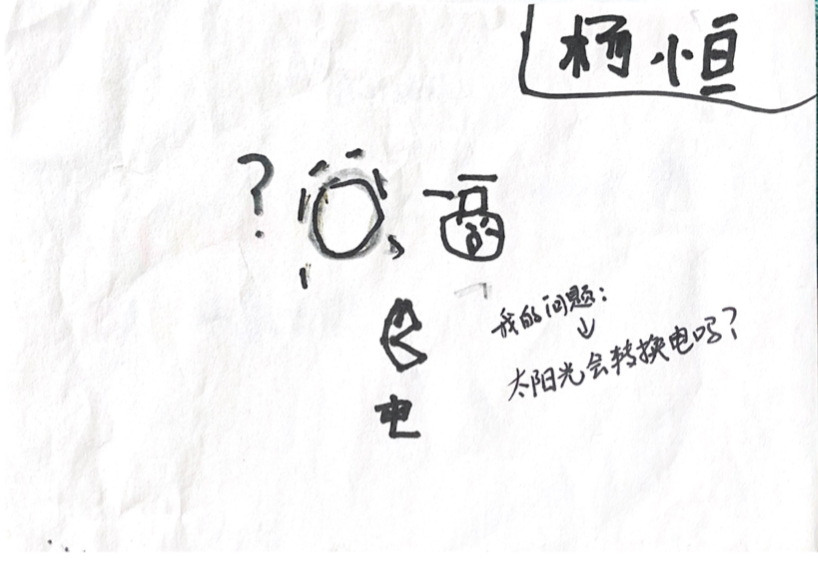 杨恒
?
电
我的问题:
↓
太阳光会转换电吗?